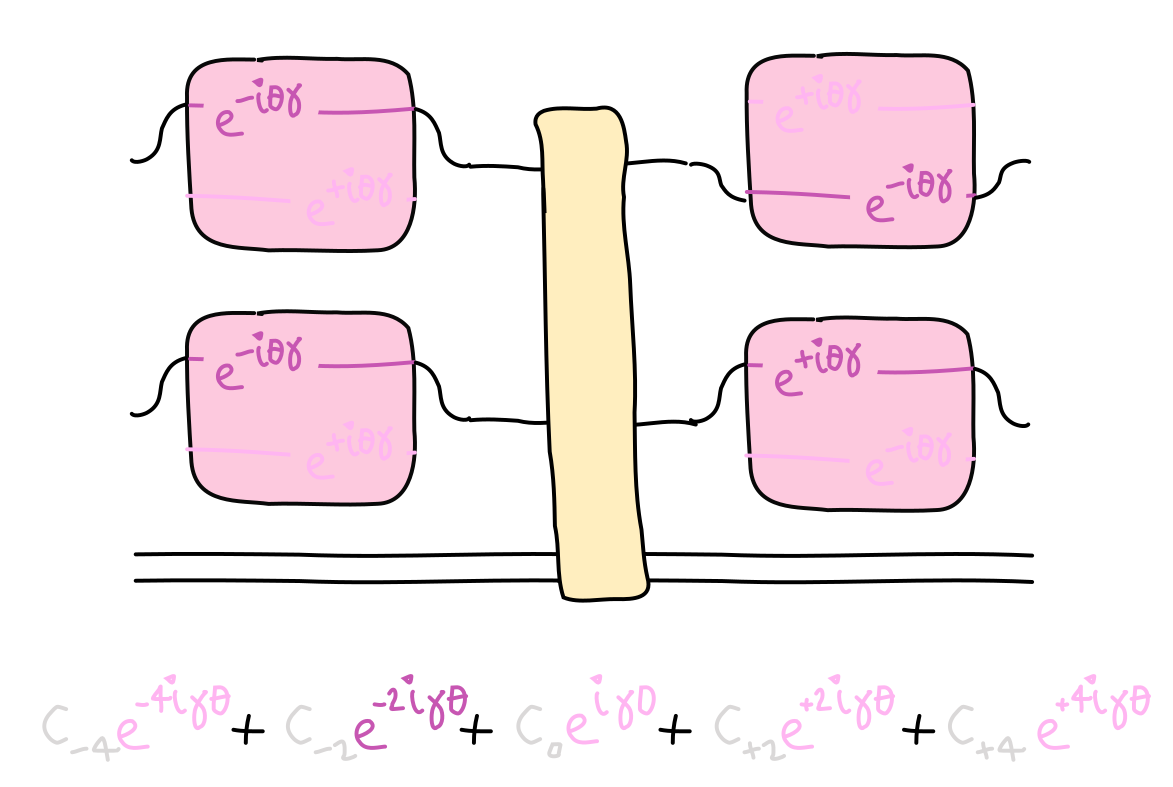 e^{-iθγ}
e^{+iθγ}
e^{+iθγ}
e^{-iθγ}
e^{-iθγ}
e^{+iθγ}
e^{+iθγ}
e^{-iθγ}
C_{-4}e^{-4iγθ} + C_{-2}e^{-2iγθ} + C_{0}e^{iγ0} + C_{+2}e^{+2iγθ} + C_{+4}e^{+4iγθ}